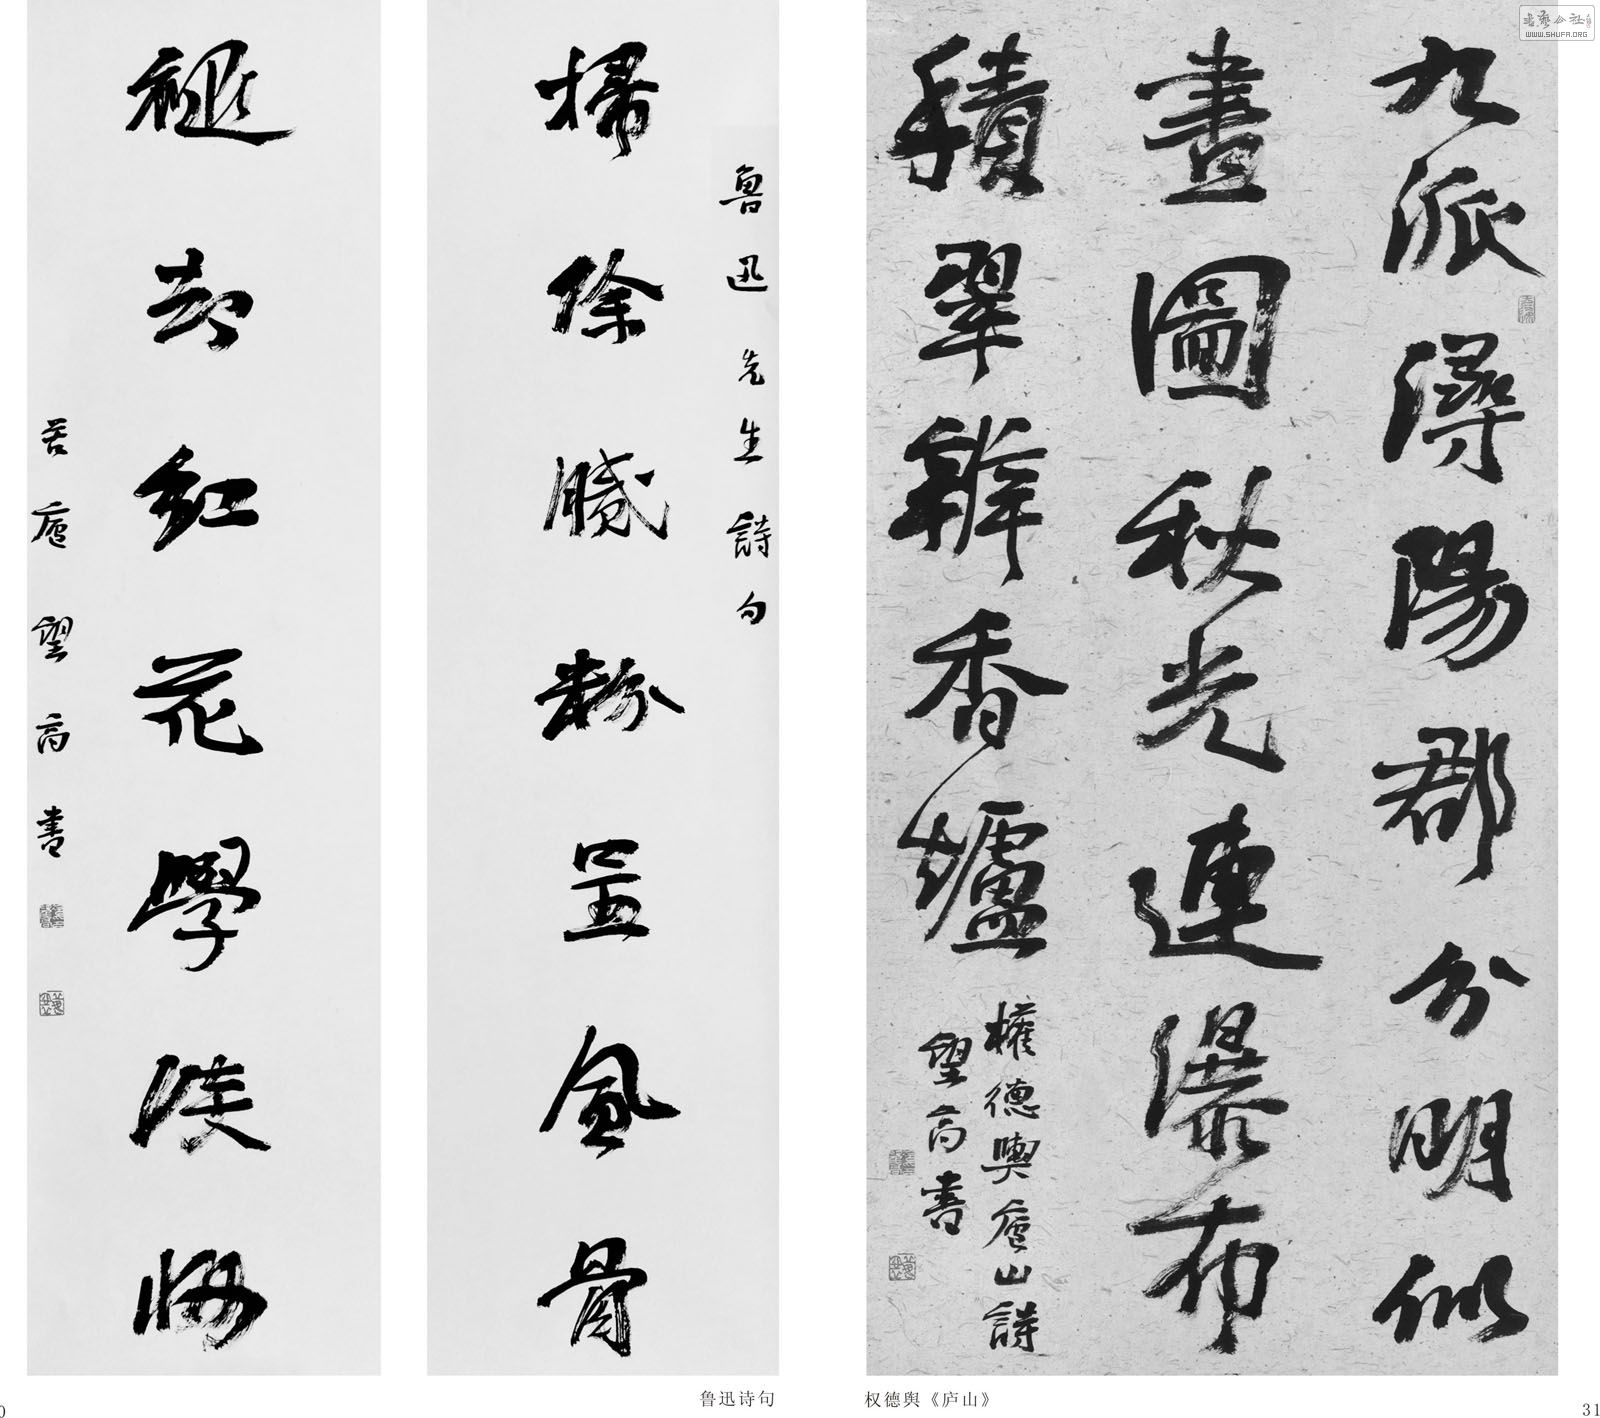 書藝公社
WWW.SHUFA.ORG
九派潯陽郡分明似
畫圖秋光連瀑布
積翠辨香爐
權德輿廬山詩
望高書
魯迅先生詩句
掃除膩粉呈風骨
褪却紅衣學淡妝
廬望高書
鲁迅诗句
权德舆《庐山》
0
31